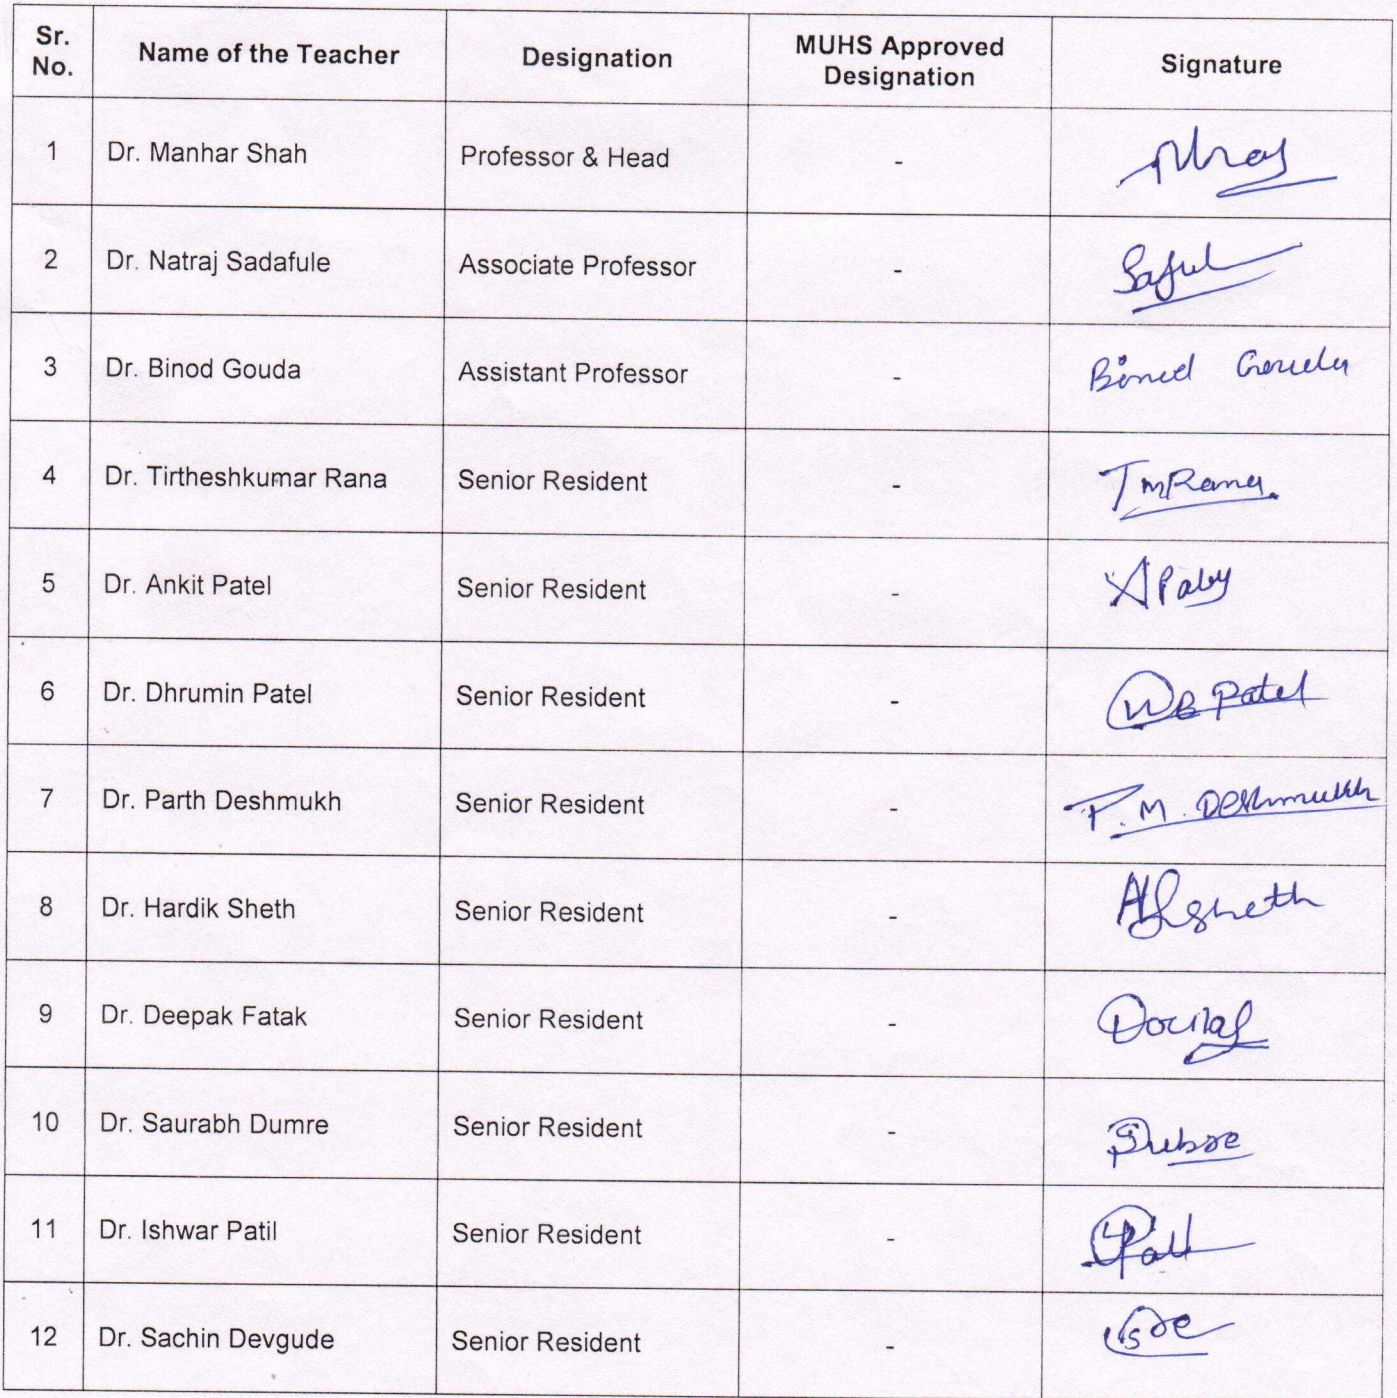 Sr. No. Name of the Teacher Designation MUHS Approved Designation Signature
1 Dr. Manhar Shah Professor & Head -
2 Dr. Natraj Sadafule Associate Professor -
3 Dr. Binod Gouda Assistant Professor - Binod Gouda
4 Dr. Tirtheshkumar Rana Senior Resident - TMRana.
5 Dr. Ankit Patel Senior Resident -
6 Dr. Dhrumin Patel Senior Resident - Patel
7 Dr. Parth Deshmukh Senior Resident - P. M. Deshmukh
8 Dr. Hardik Sheth Senior Resident -
9 Dr. Deepak Fatak Senior Resident -
10 Dr. Saurabh Dumre Senior Resident -
11 Dr. Ishwar Patil Senior Resident -
12 Dr. Sachin Devgude Senior Resident -